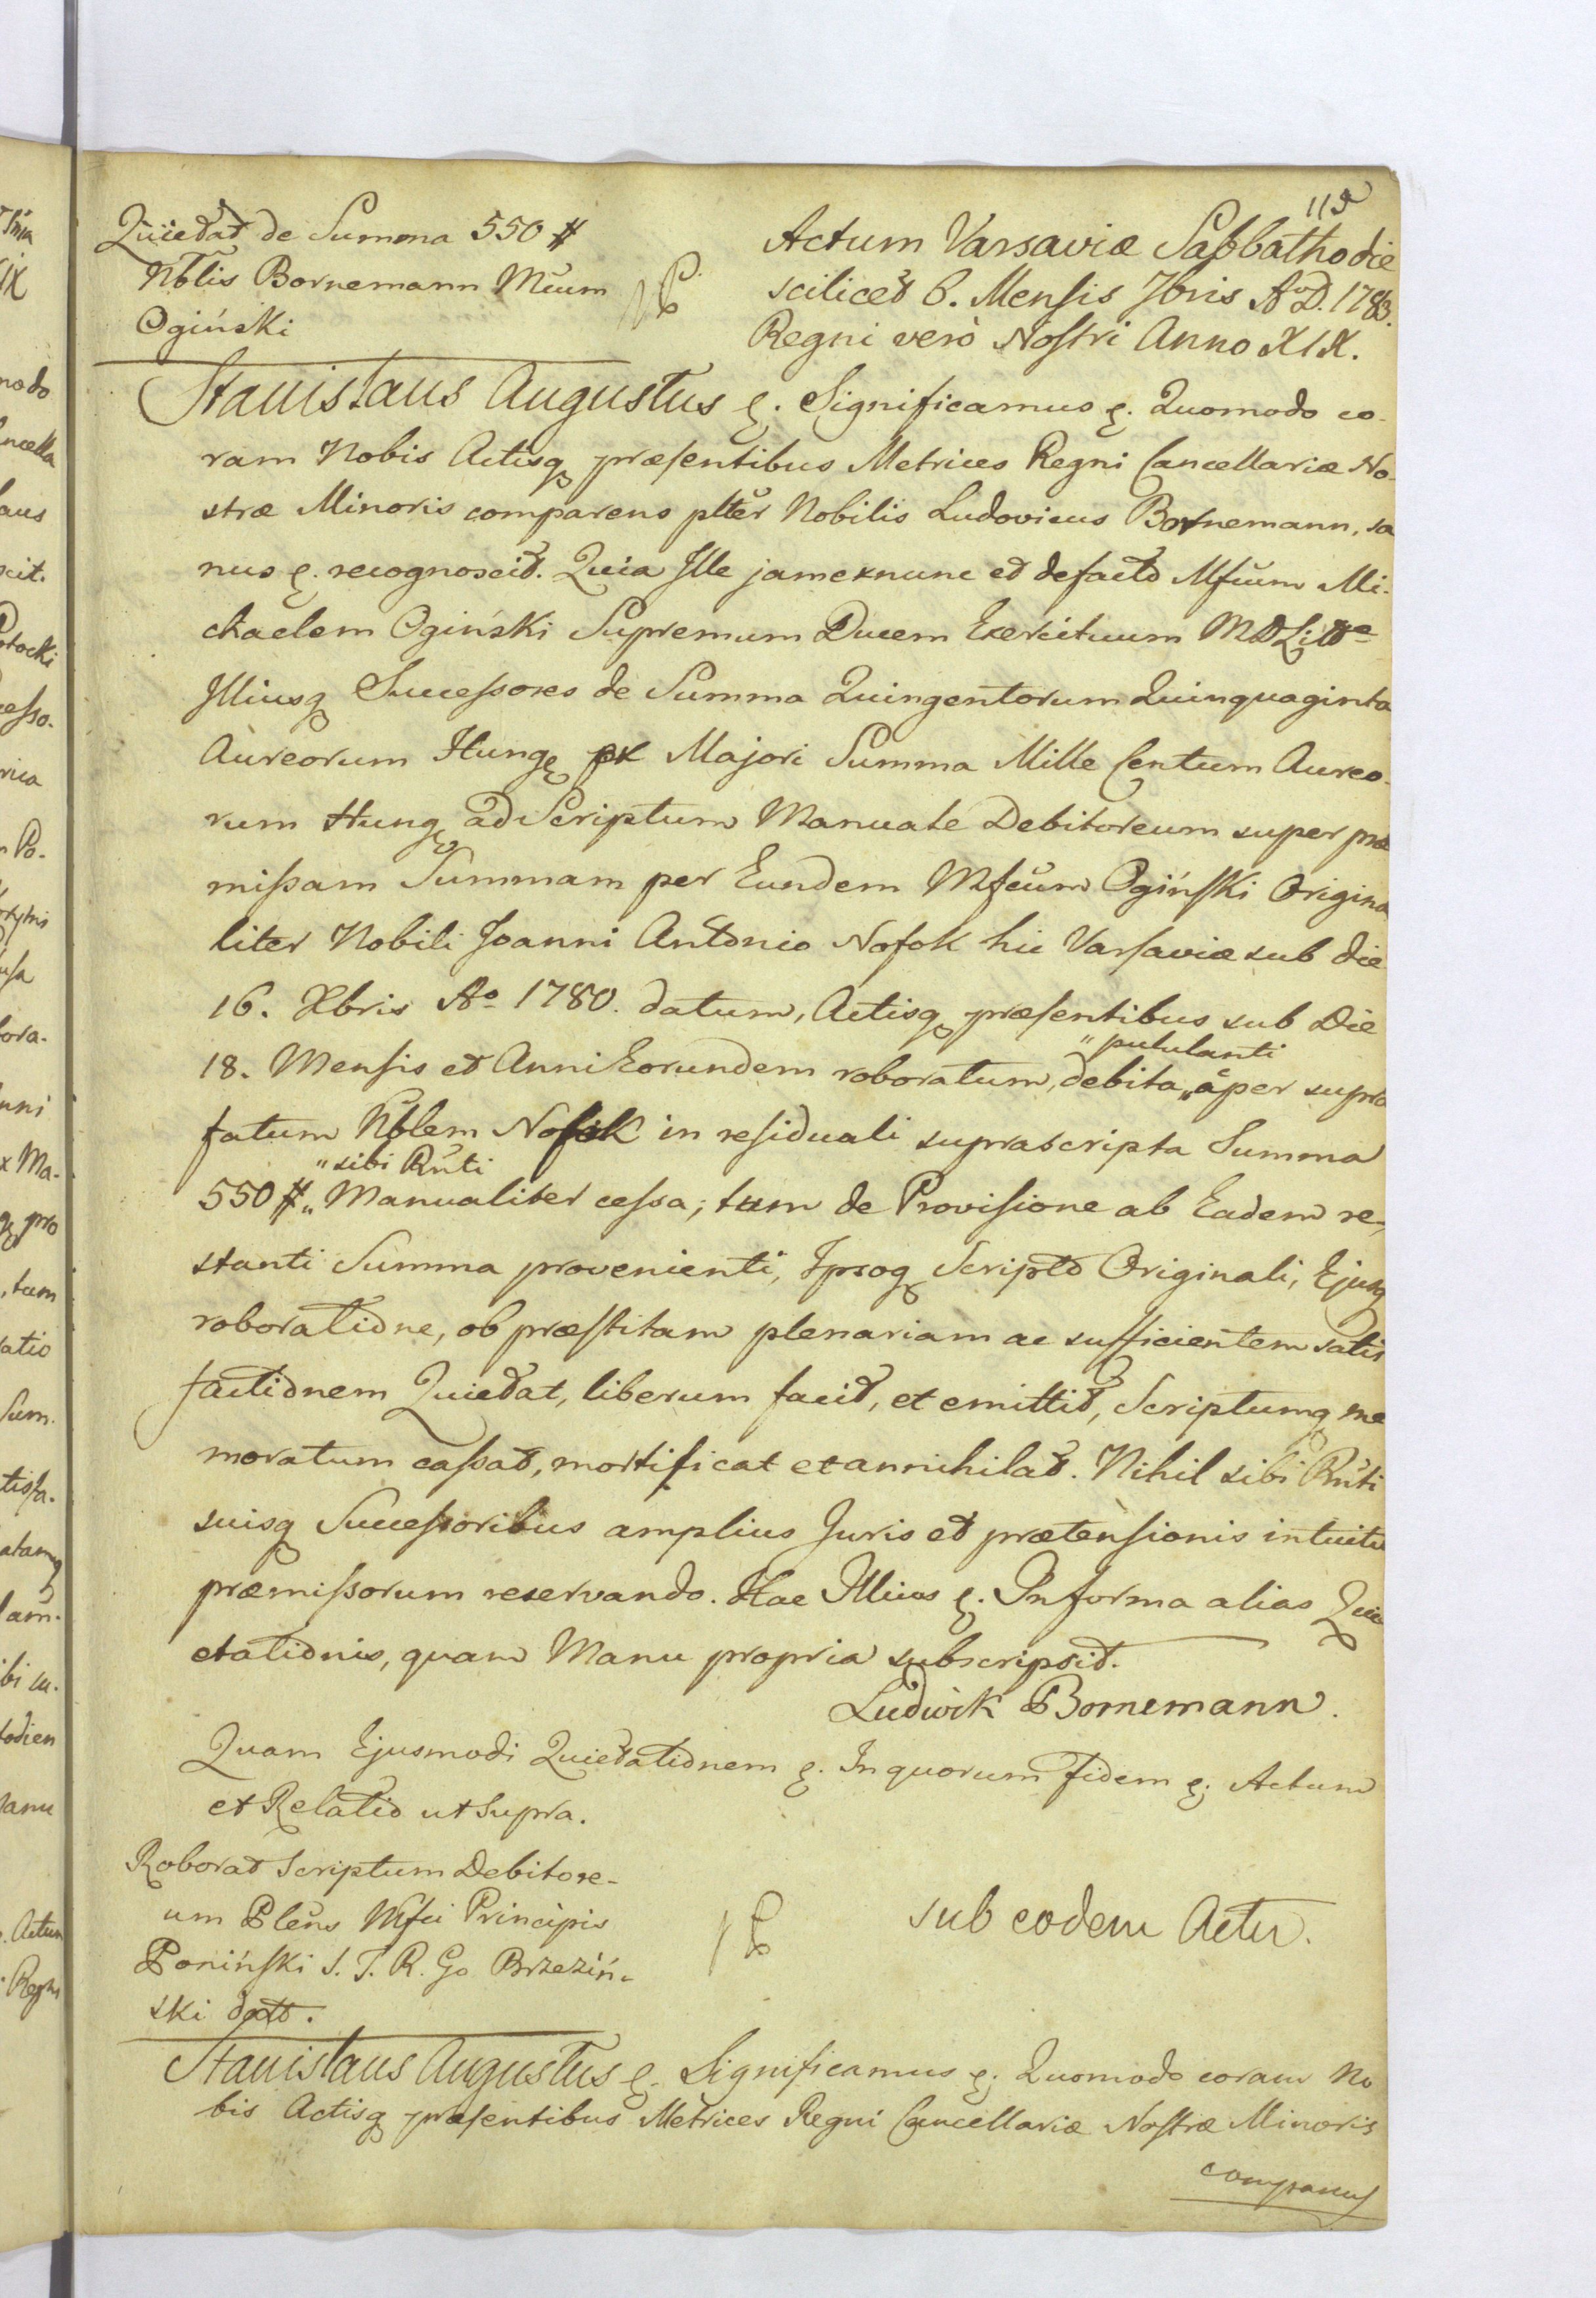 115
Quietat de Summa 550 #
Nblis Bornemann Mcum
Ogiński
Actum Varsaviæ Sabbatho die
scilicet 6. Mensis 7bris AoD. 1783.
Regni verò Nostri Anno XIX.
Stanislaus Augustus &. Significamus &. Quomodo co-
ram Nobis Actisq præsentibus Metrices Regni Cancellariæ No-
stræ Minoris comparens pltěr Nobilis Ludovicus Bornemann, sa
nus &. recognoscit. Quia Ille jamexnunc et defacto Mfcum Mi-
chaelem Ogiński Supremum Ducem Exercituum MDLittæ
Illiusq Successores de Summa Quingentorum Quinquaginta
Aureorum Hung ex Majori Summa Mille Centum Aureo-
rum Hung ad Scriptum Manuale Debitoreum super præ
missam Summam per Eundem Mfcum Ogiński Origina
liter Nobili Joanni Antonio Nosok hic Varsaviæ sub die
16. Xbris Ao 1780. datum, Actisq præsentibus sub Die
"pululanti
18. Mensis et Anni Eorundem roboratum, debita " àper supra
fatum Nblem Nosok in residuali suprascripta Summa
"sibi Rńti
550 # " Manualiter cessa; tum de Provisione ab Eadem re-
stanti Summa provenienti, Ipsoq Scripto Originali, Ejusq
roboratione, ob præstitam plenariam ac sufficientem satis
factionem Quietat, liberum facit, et emittit, Scriptumq me
moratum cassat, mortificat et annihilat. Nihil sibi Rńti
suisq Successoribus amplius Juris et prætensionis intuitu
præmissorum reservando. Hac Illius &. In forma alias Qui
etationis, quam Manu propria subscripsit.
Ludwik Bornemann.
Quam Ejusmodi Quietationem &. In quorum fidem &. Actum
et Relatio ut supra.
Roborat Scriptum Debitore-
um Pleńs Mfci Principis
Poniński S. T. R. Go Brzeziń-
ski datt.
sub eodem Actu.
Stanislaus Augustus &. Significamus &. Quomodo coram No
bis Actisq præsentibus Metrices Regni Cancellariæ Nostræ Minoris
comparens